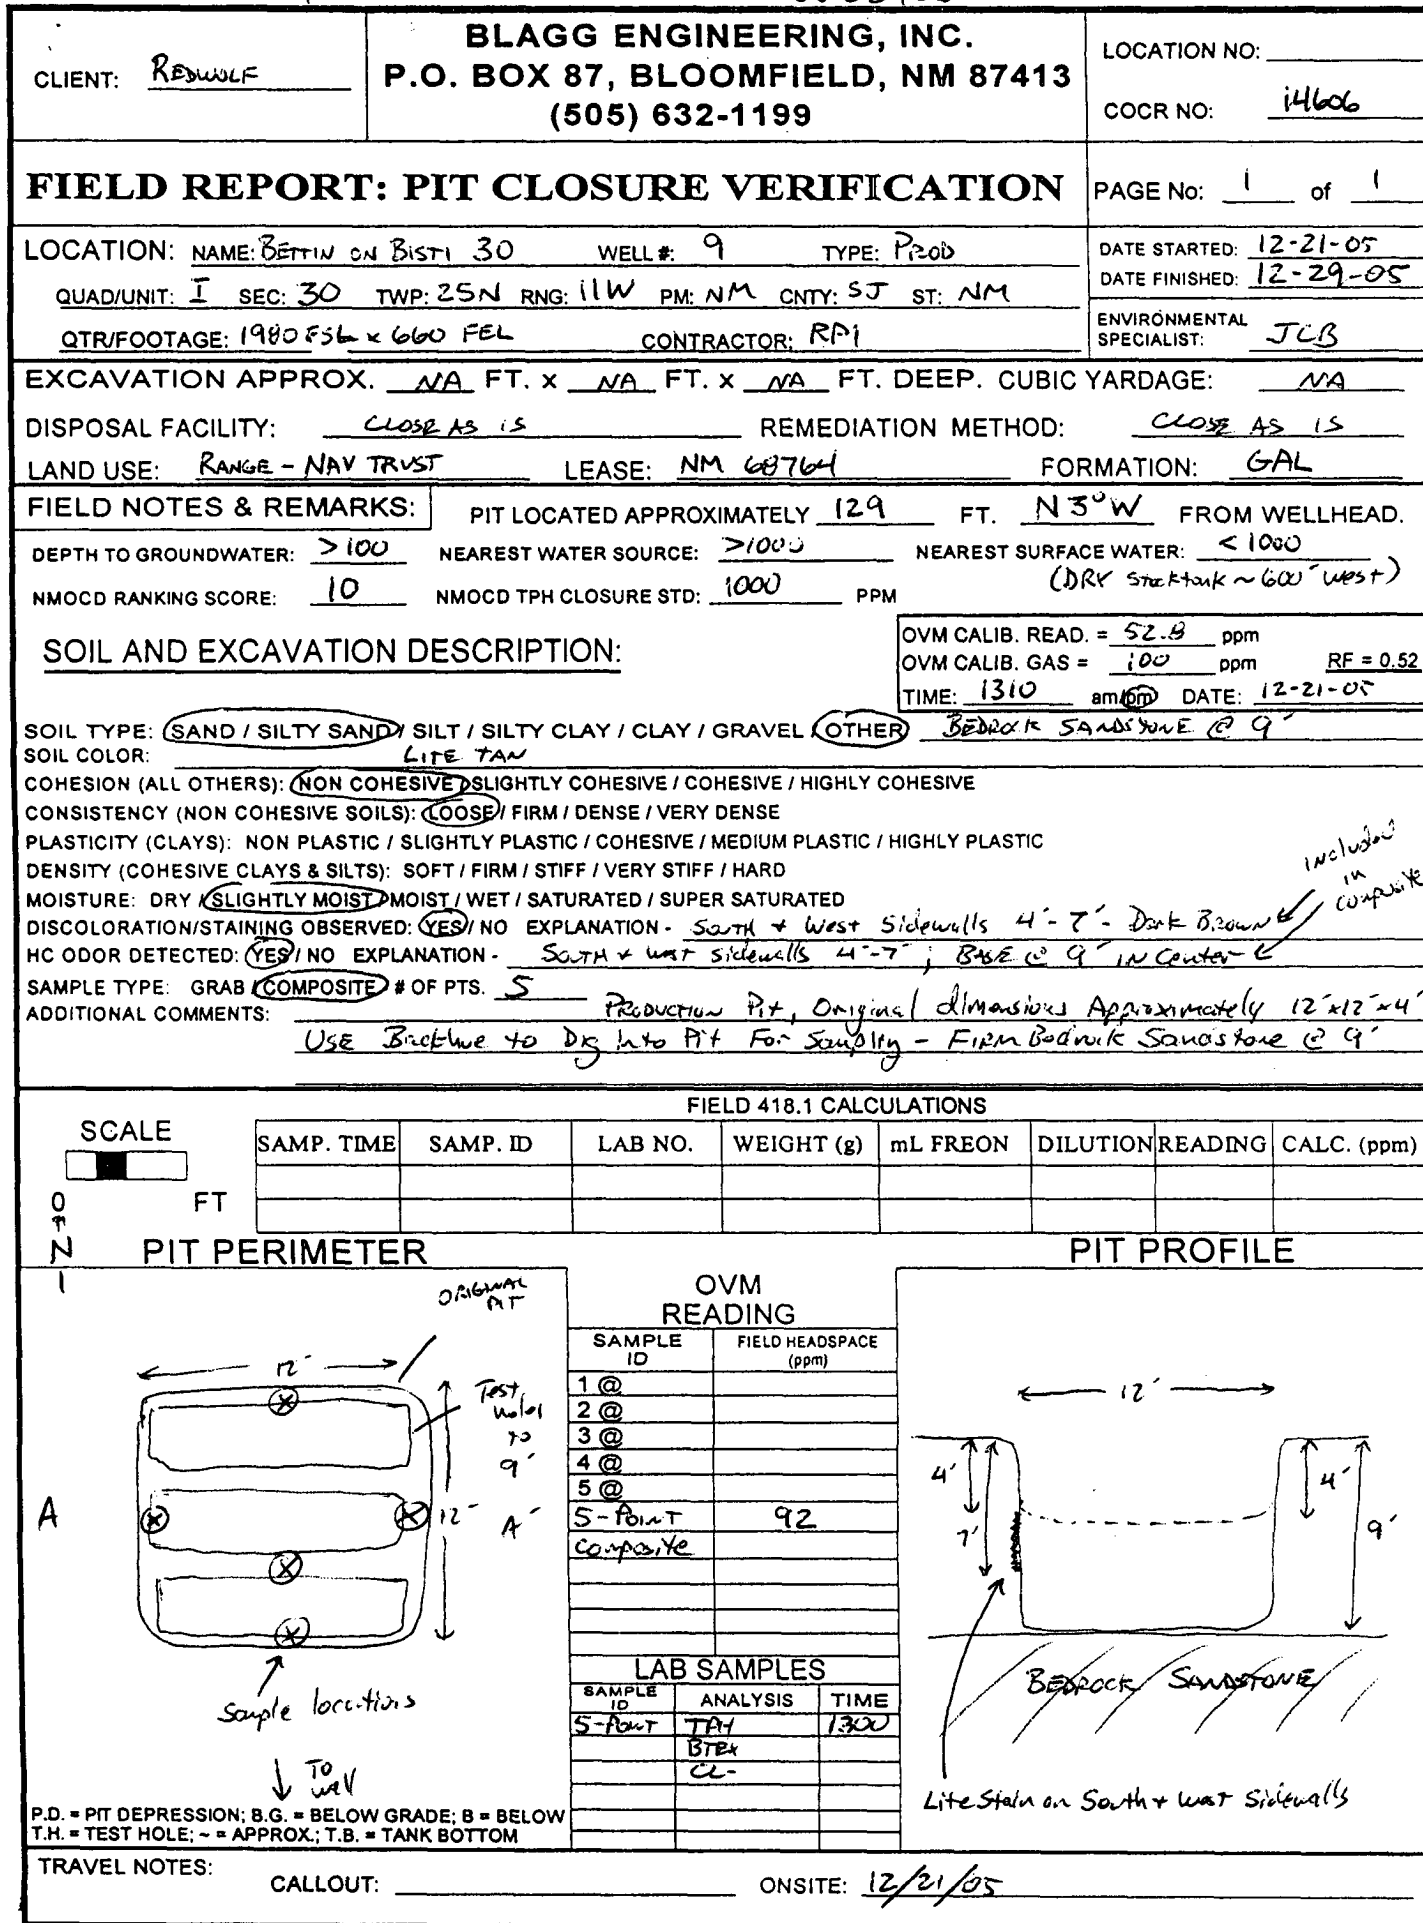 BLAGG ENGINEERING, INC.
P.O. BOX 87, BLOOMFIELD, NM 87413
(505) 632-1199
CLIENT: REDWOLF
LOCATION NO:
COCR NO: 14606
FIELD REPORT: PIT CLOSURE VERIFICATION
PAGE No: 1 of 1
LOCATION: NAME: BETTIN ON BISTI 30 WELL #: 9 TYPE: PROD
QUAD/UNIT: I SEC: 30 TWP: 25N RNG: 11W PM: NM CNTY: SJ ST: NM
QTR/FOOTAGE: 1980 FSL x 660 FEL CONTRACTOR: RPI
DATE STARTED: 12-21-05
DATE FINISHED: 12-29-05
ENVIRONMENTAL
SPECIALIST: JCB
EXCAVATION APPROX. NA FT. x NA FT. x NA FT. DEEP. CUBIC YARDAGE: NA
DISPOSAL FACILITY: CLOSE AS IS REMEDIATION METHOD: CLOSE AS IS
LAND USE: RANGE - NAV TRUST LEASE: NM 68764 FORMATION: GAL
FIELD NOTES & REMARKS: PIT LOCATED APPROXIMATELY 129 FT. N3°W FROM WELLHEAD.
DEPTH TO GROUNDWATER: >100 NEAREST WATER SOURCE: >1000 NEAREST SURFACE WATER: <1000
(DRY stocktank ~600' west)
NMOCD RANKING SCORE: 10 NMOCD TPH CLOSURE STD: 1000 PPM
SOIL AND EXCAVATION DESCRIPTION:
OVM CALIB. READ. = 52.8 ppm
OVM CALIB. GAS = 100 ppm RF = 0.52
TIME: 1310 am/pm DATE: 12-21-05
SOIL TYPE: SAND / SILTY SAND / SILT / SILTY CLAY / CLAY / GRAVEL / OTHER BEDROCK SANDSTONE @ 9'
SOIL COLOR: LITE TAN
COHESION (ALL OTHERS): NON COHESIVE / SLIGHTLY COHESIVE / COHESIVE / HIGHLY COHESIVE
CONSISTENCY (NON COHESIVE SOILS): LOOSE / FIRM / DENSE / VERY DENSE
PLASTICITY (CLAYS): NON PLASTIC / SLIGHTLY PLASTIC / COHESIVE / MEDIUM PLASTIC / HIGHLY PLASTIC
DENSITY (COHESIVE CLAYS & SILTS): SOFT / FIRM / STIFF / VERY STIFF / HARD
MOISTURE: DRY / SLIGHTLY MOIST / MOIST / WET / SATURATED / SUPER SATURATED
included
in
composite
DISCOLORATION/STAINING OBSERVED: YES / NO EXPLANATION - South + West Sidewalls 4'-7' - Dark Brown
HC ODOR DETECTED: YES / NO EXPLANATION - South + west sidewalls 4'-7'; BASE @ 9' IN Center
SAMPLE TYPE: GRAB / COMPOSITE # OF PTS. 5
ADDITIONAL COMMENTS: PRODUCTION Pit, Original dimensions Approximately 12'x12'x4'
USE Backhoe to Dig Into Pit For Sampling - FIRM Bedrock Sandstone @ 9'
SCALE
0 FT
N
FIELD 418.1 CALCULATIONS
SAMP. TIME SAMP. ID LAB NO. WEIGHT (g) mL FREON DILUTION READING CALC. (ppm)
PIT PERIMETER
ORIGINAL
PIT
12'
Test
holes
to
9'
12'
A A'
Sample locations
To
well
P.D. = PIT DEPRESSION; B.G. = BELOW GRADE; B = BELOW
T.H. = TEST HOLE; ~ = APPROX.; T.B. = TANK BOTTOM
OVM
READING
SAMPLE ID FIELD HEADSPACE (ppm)
1 @
2 @
3 @
4 @
5 @
5-Point 92
composite
LAB SAMPLES
SAMPLE ID ANALYSIS TIME
5-Point TPH 1300
BTEX
CL-
PIT PROFILE
12'
4'
7'
4'
9'
BEDROCK SANDSTONE
Lite Stain on South + West Sidewalls
TRAVEL NOTES:
CALLOUT: ONSITE: 12/21/05